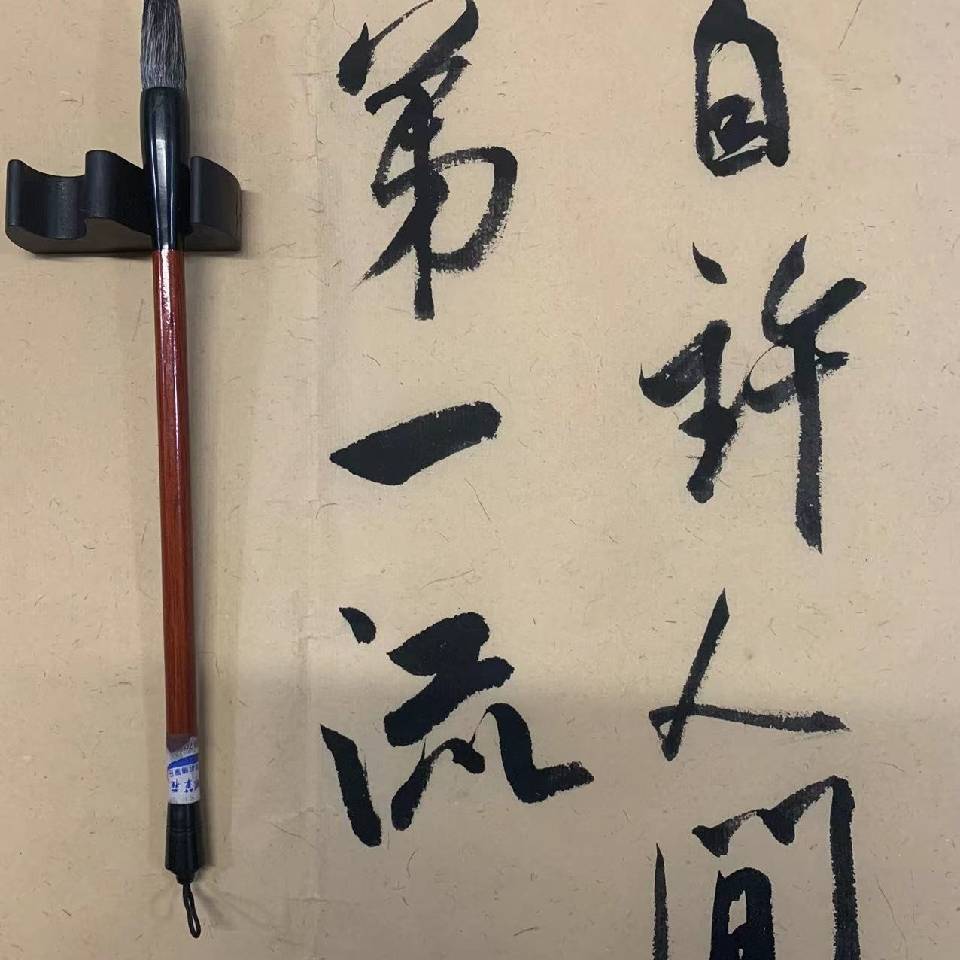 自许人间
第一流